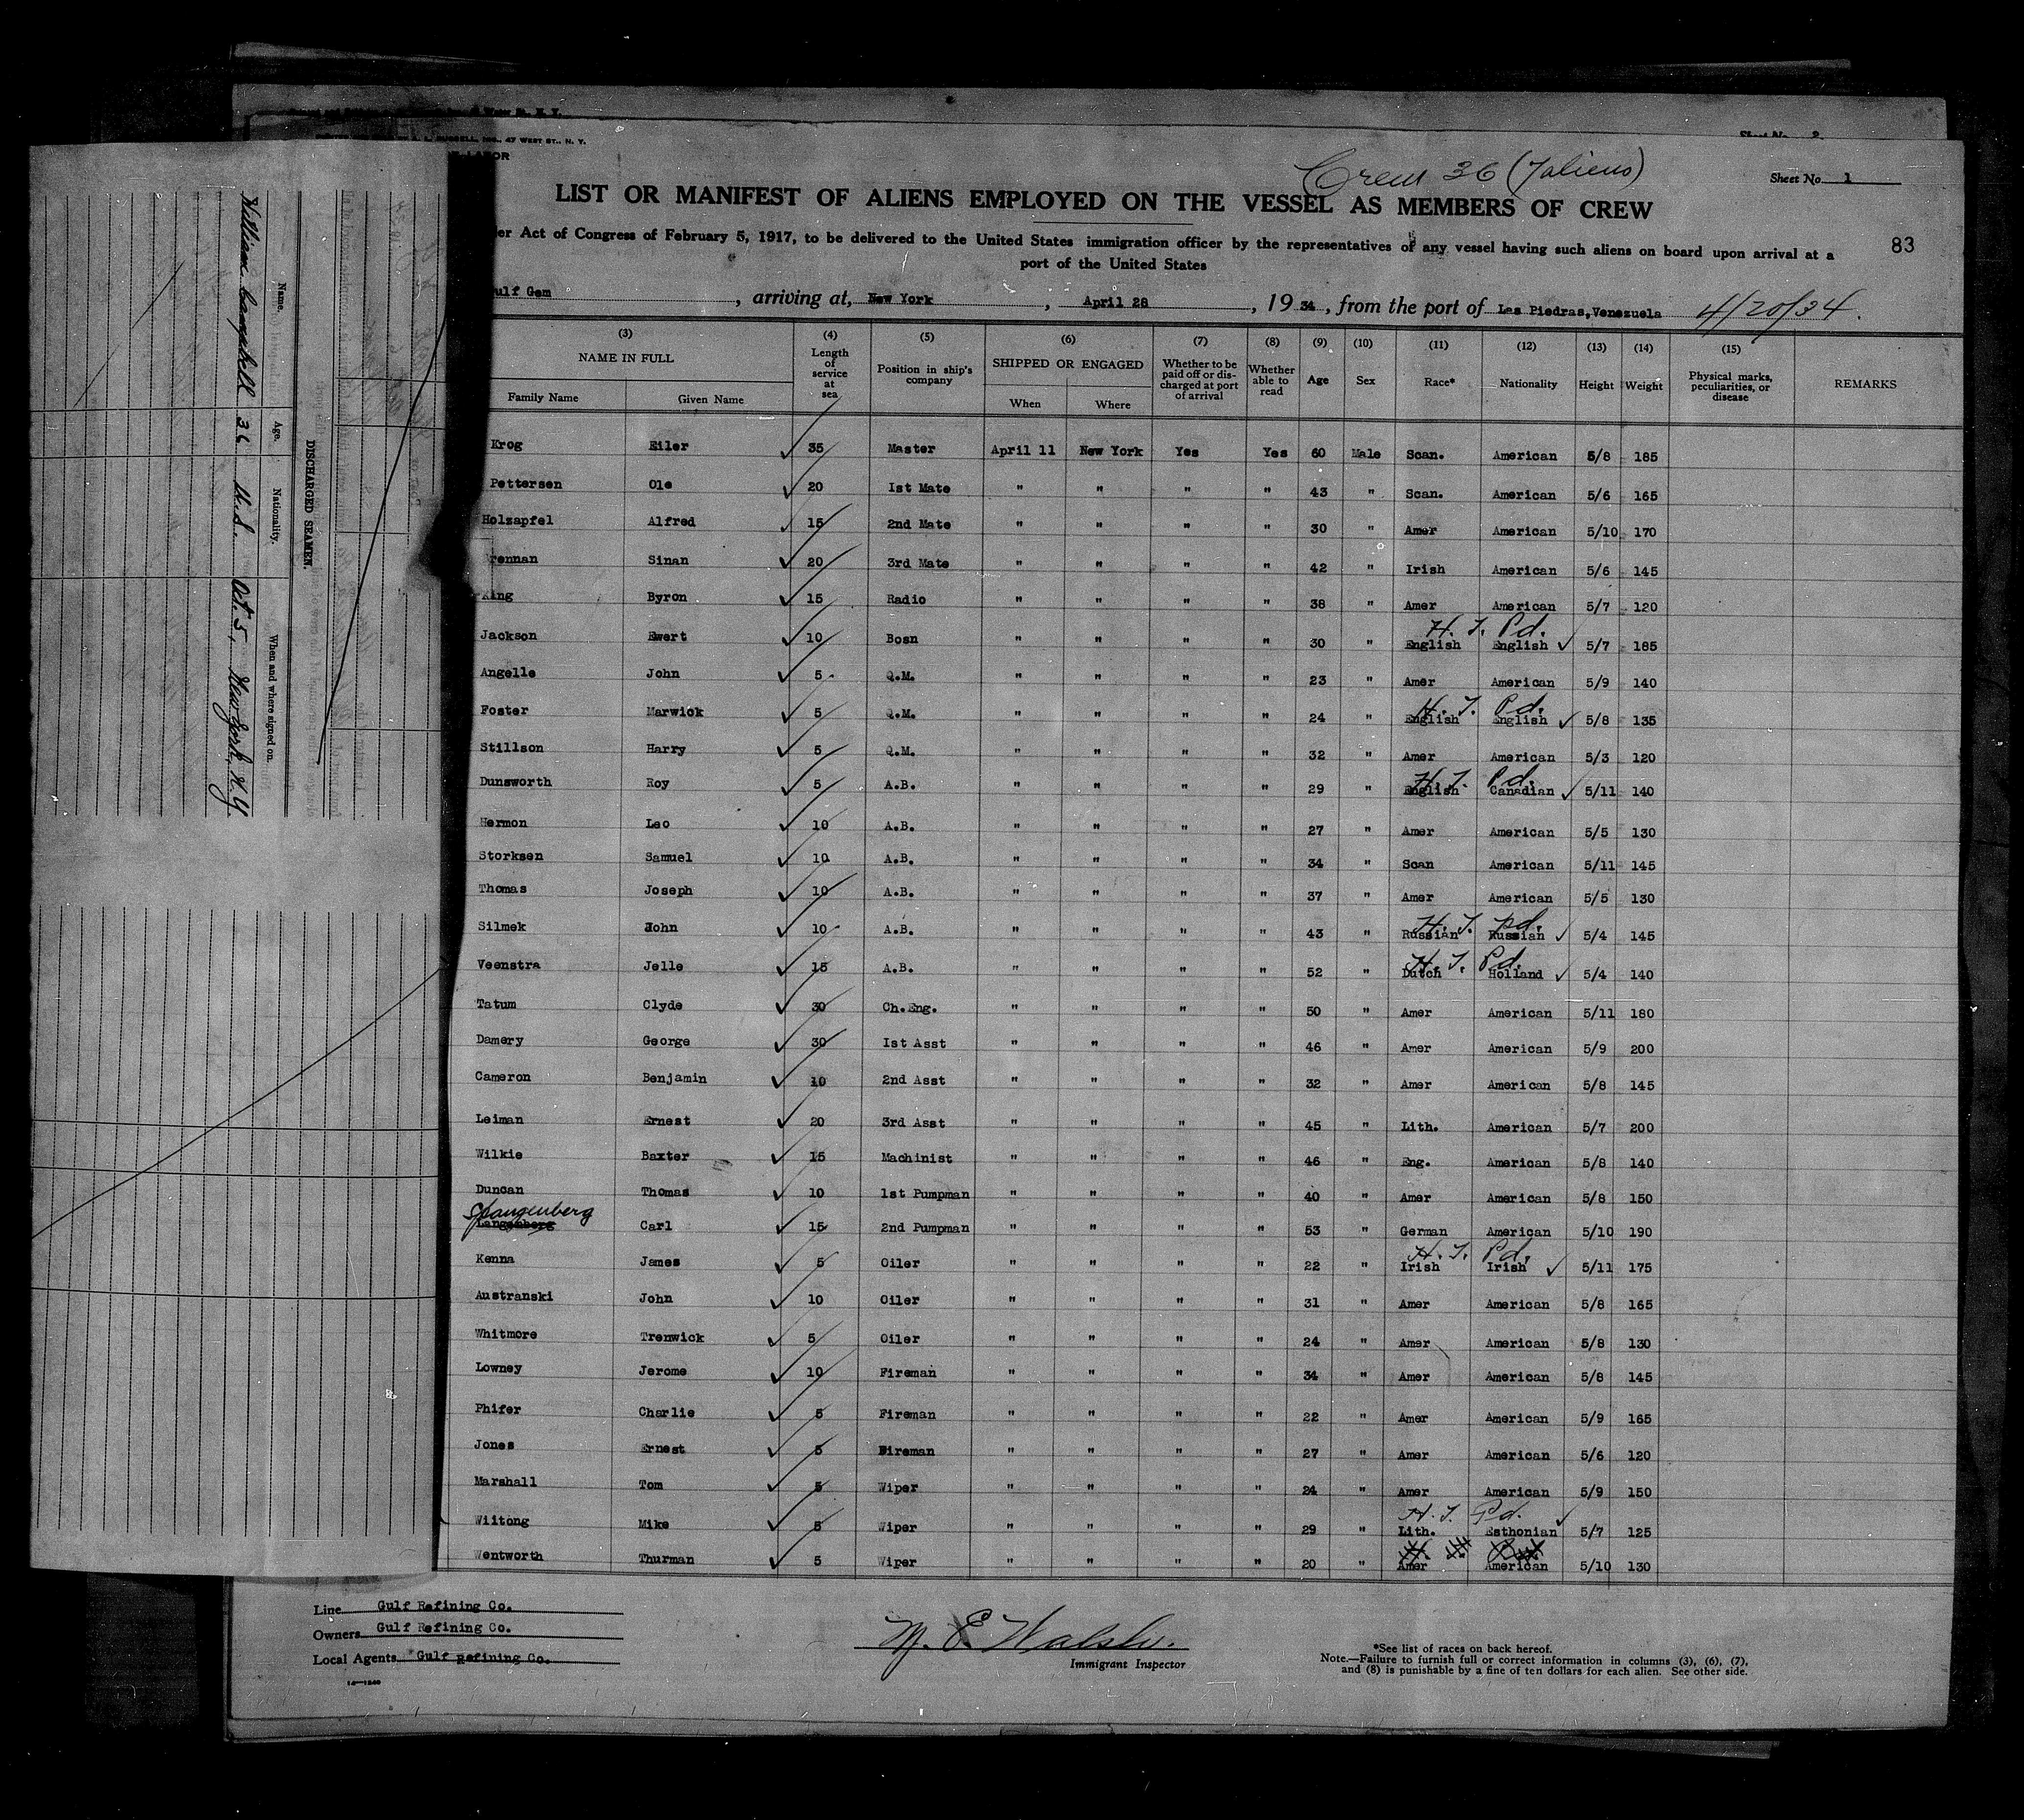 Sheet No. 2
RUSSELL, INC., 47 WEST ST., N. Y.
Crew 36 (7 aliens)
Sheet No. 1
LIST OR MANIFEST OF ALIENS EMPLOYED ON THE VESSEL AS MEMBERS OF CREW
83
er Act of Congress of February 5, 1917, to be delivered to the United States immigration officer by the representatives of any vessel having such aliens on board upon arrival at a
port of the United States
ulf Gem, arriving at, New York, April 28, 1934, from the port of Las Piedras, Venezuela 4/20/34.
(3) (4) (5) (6) (7) (8) (9) (10) (11) (12) (13) (14) (15)
NAME IN FULL Length of service at sea Position in ship's company SHIPPED OR ENGAGED Whether to be paid off or discharged at port of arrival Whether able to read Age Sex Race* Nationality Height Weight Physical marks, peculiarities, or disease REMARKS
Family Name Given Name When Where
Krog Eiler ✓ 35 Master April 11 New York Yes Yes 60 Male Scan. American 5/8 185
Pettersen Ole ✓ 20 1st Mate " " " " 43 " Scan. American 5/6 165
Holzapfel Alfred ✓ 15 2nd Mate " " " " 30 " Amer American 5/10 170
rennan Sinan ✓ 20 3rd Mate " " " " 42 " Irish American 5/6 145
King Byron ✓ 15 Radio " " " " 38 " Amer American 5/7 120
H. T. Pd.
Jackson Ewert ✓ 10 Bosn " " " " 30 " English English ✓ 5/7 185
Angelle John ✓ 5 Q.M. " " " " 23 " Amer American 5/9 140
H. T. Pd.
Foster Marwick ✓ 5 Q.M. " " " " 24 " English English ✓ 5/8 135
Stillson Harry ✓ 5 Q.M. " " " " 32 " Amer American 5/3 120
H. T. Pd.
Dunsworth Roy ✓ 5 A.B. " " " " 29 " English Canadian ✓ 5/11 140
Hermon Leo ✓ 10 A.B. " " " " 27 " Amer American 5/5 130
Storksen Samuel ✓ 10 A.B. " " " " 34 " Scan American 5/11 145
Thomas Joseph ✓ 10 A.B. " " " " 37 " Amer American 5/5 130
H. T. Pd.
Silmek John ✓ 10 A.B. " " " " 43 " Russian Russian ✓ 5/4 145
H. T. Pd.
Veenstra Jelle ✓ 15 A.B. " " " " 52 " Dutch Holland ✓ 5/4 140
Tatum Clyde ✓ 30 Ch.Eng. " " " " 50 " Amer American 5/11 180
Damery George ✓ 30 1st Asst " " " " 46 " Amer American 5/9 200
Cameron Benjamin ✓ 10 2nd Asst " " " " 32 " Amer American 5/8 145
Leiman Ernest ✓ 20 3rd Asst " " " " 45 " Lith. American 5/7 200
Wilkie Baxter ✓ 15 Machinist " " " " 46 " Eng. American 5/8 140
Duncan Thomas ✓ 10 1st Pumpman " " " " 40 " Amer American 5/8 150
Spangenberg
Langenberg Carl ✓ 15 2nd Pumpman " " " " 53 " German American 5/10 190
H. T. Pd.
Kenna James ✓ 5 Oiler " " " " 22 " Irish Irish ✓ 5/11 175
Austranski John ✓ 10 Oiler " " " " 31 " Amer American 5/8 165
Whitmore Trenwick ✓ 5 Oiler " " " " 24 " Amer American 5/8 130
Lowney Jerome ✓ 10 Fireman " " " " 34 " Amer American 5/8 145
Phifer Charlie ✓ 5 Fireman " " " " 22 " Amer American 5/9 165
Jones Ernest ✓ 5 Fireman " " " " 27 " Amer American 5/6 120
Marshall Tom ✓ 5 Wiper " " " " 24 " Amer American 5/9 150
H. T. Pd. ✓
Wiitong Mike ✓ 5 Wiper " " " " 29 " Lith. Esthonian 5/7 125
Wentworth Thurman ✓ 5 Wiper " " " " 20 " Amer American 5/10 130
Line Gulf Refining Co.
Owners Gulf Refining Co.
Local Agents Gulf Refining Co.
14—1240
M. E. Walsh.
Immigrant Inspector
*See list of races on back hereof.
Note.—Failure to furnish full or correct information in columns (3), (6), (7),
and (8) is punishable by a fine of ten dollars for each alien. See other side.
DISCHARGED SEAMEN.
Name. Age. Nationality. When and where signed on.
William Campbell 36 U.S. Oct. 5, New York, N.Y.